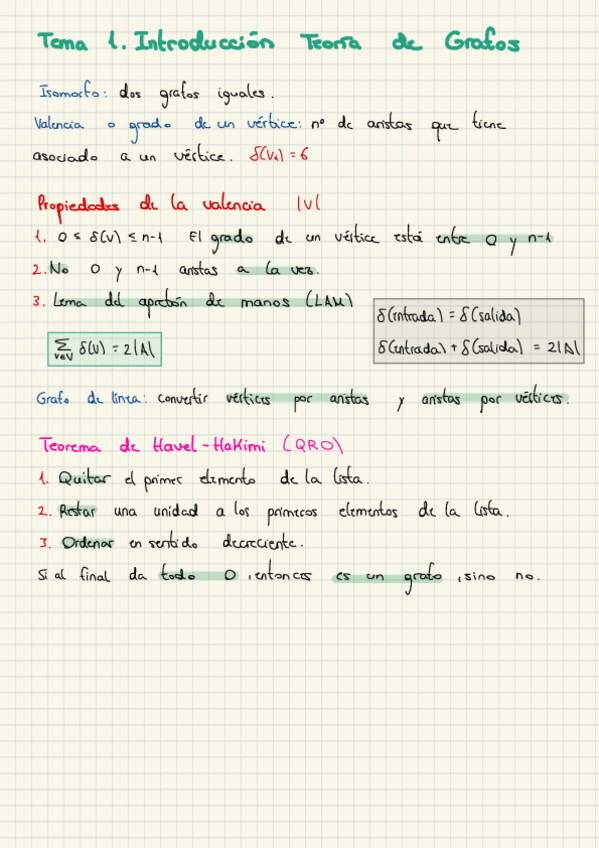 Tema 1. Introducción Teoría de Grafos
Isomorfo: dos grafos iguales.
Valencia o grado de un vértice: nº de aristas que tiene
asociado a un vértice. δ(V₁) = 6
Propiedades de la valencia |V|
1. 0 ≤ δ(V) ≤ n-1 El grado de un vértice está entre 0 y n-1
2. No 0 y n-1 aristas a la vez.
3. Lema del apretón de manos (LAM)
δ(entrada) = δ(salida)
Σ v∈V δ(V) = 2|A|
δ(entrada) + δ(salida) = 2|A|
Grafo de línea: convertir vértices por aristas y aristas por vértices.
Teorema de Havel-Hakimi (QRO)
1. Quitar el primer elemento de la lista.
2. Restar una unidad a los primeros elementos de la lista.
3. Ordenar en sentido decreciente.
Si al final da todo 0, entonces es un grafo, sino no.